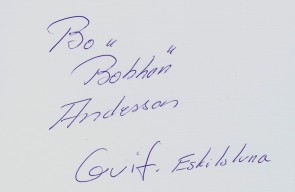 Bo "
Bobhan"
Andersson
Guif. Eskilstuna